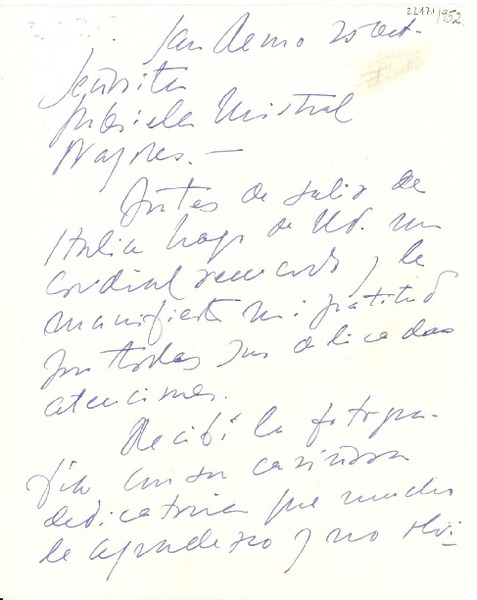 1952
San Remo 25 oct.
Señorita
Gabriela Mistral
Nápoles.—
Antes de salir de
Italia hago de Ud. un
cordial recuerdo y le
manifiesto mi gratitud
por todas sus delicadas
atenciones.
Recibí la fotogra-
fía con su cariñosa
dedicatoria que mucho
le agradezco y no olvi-